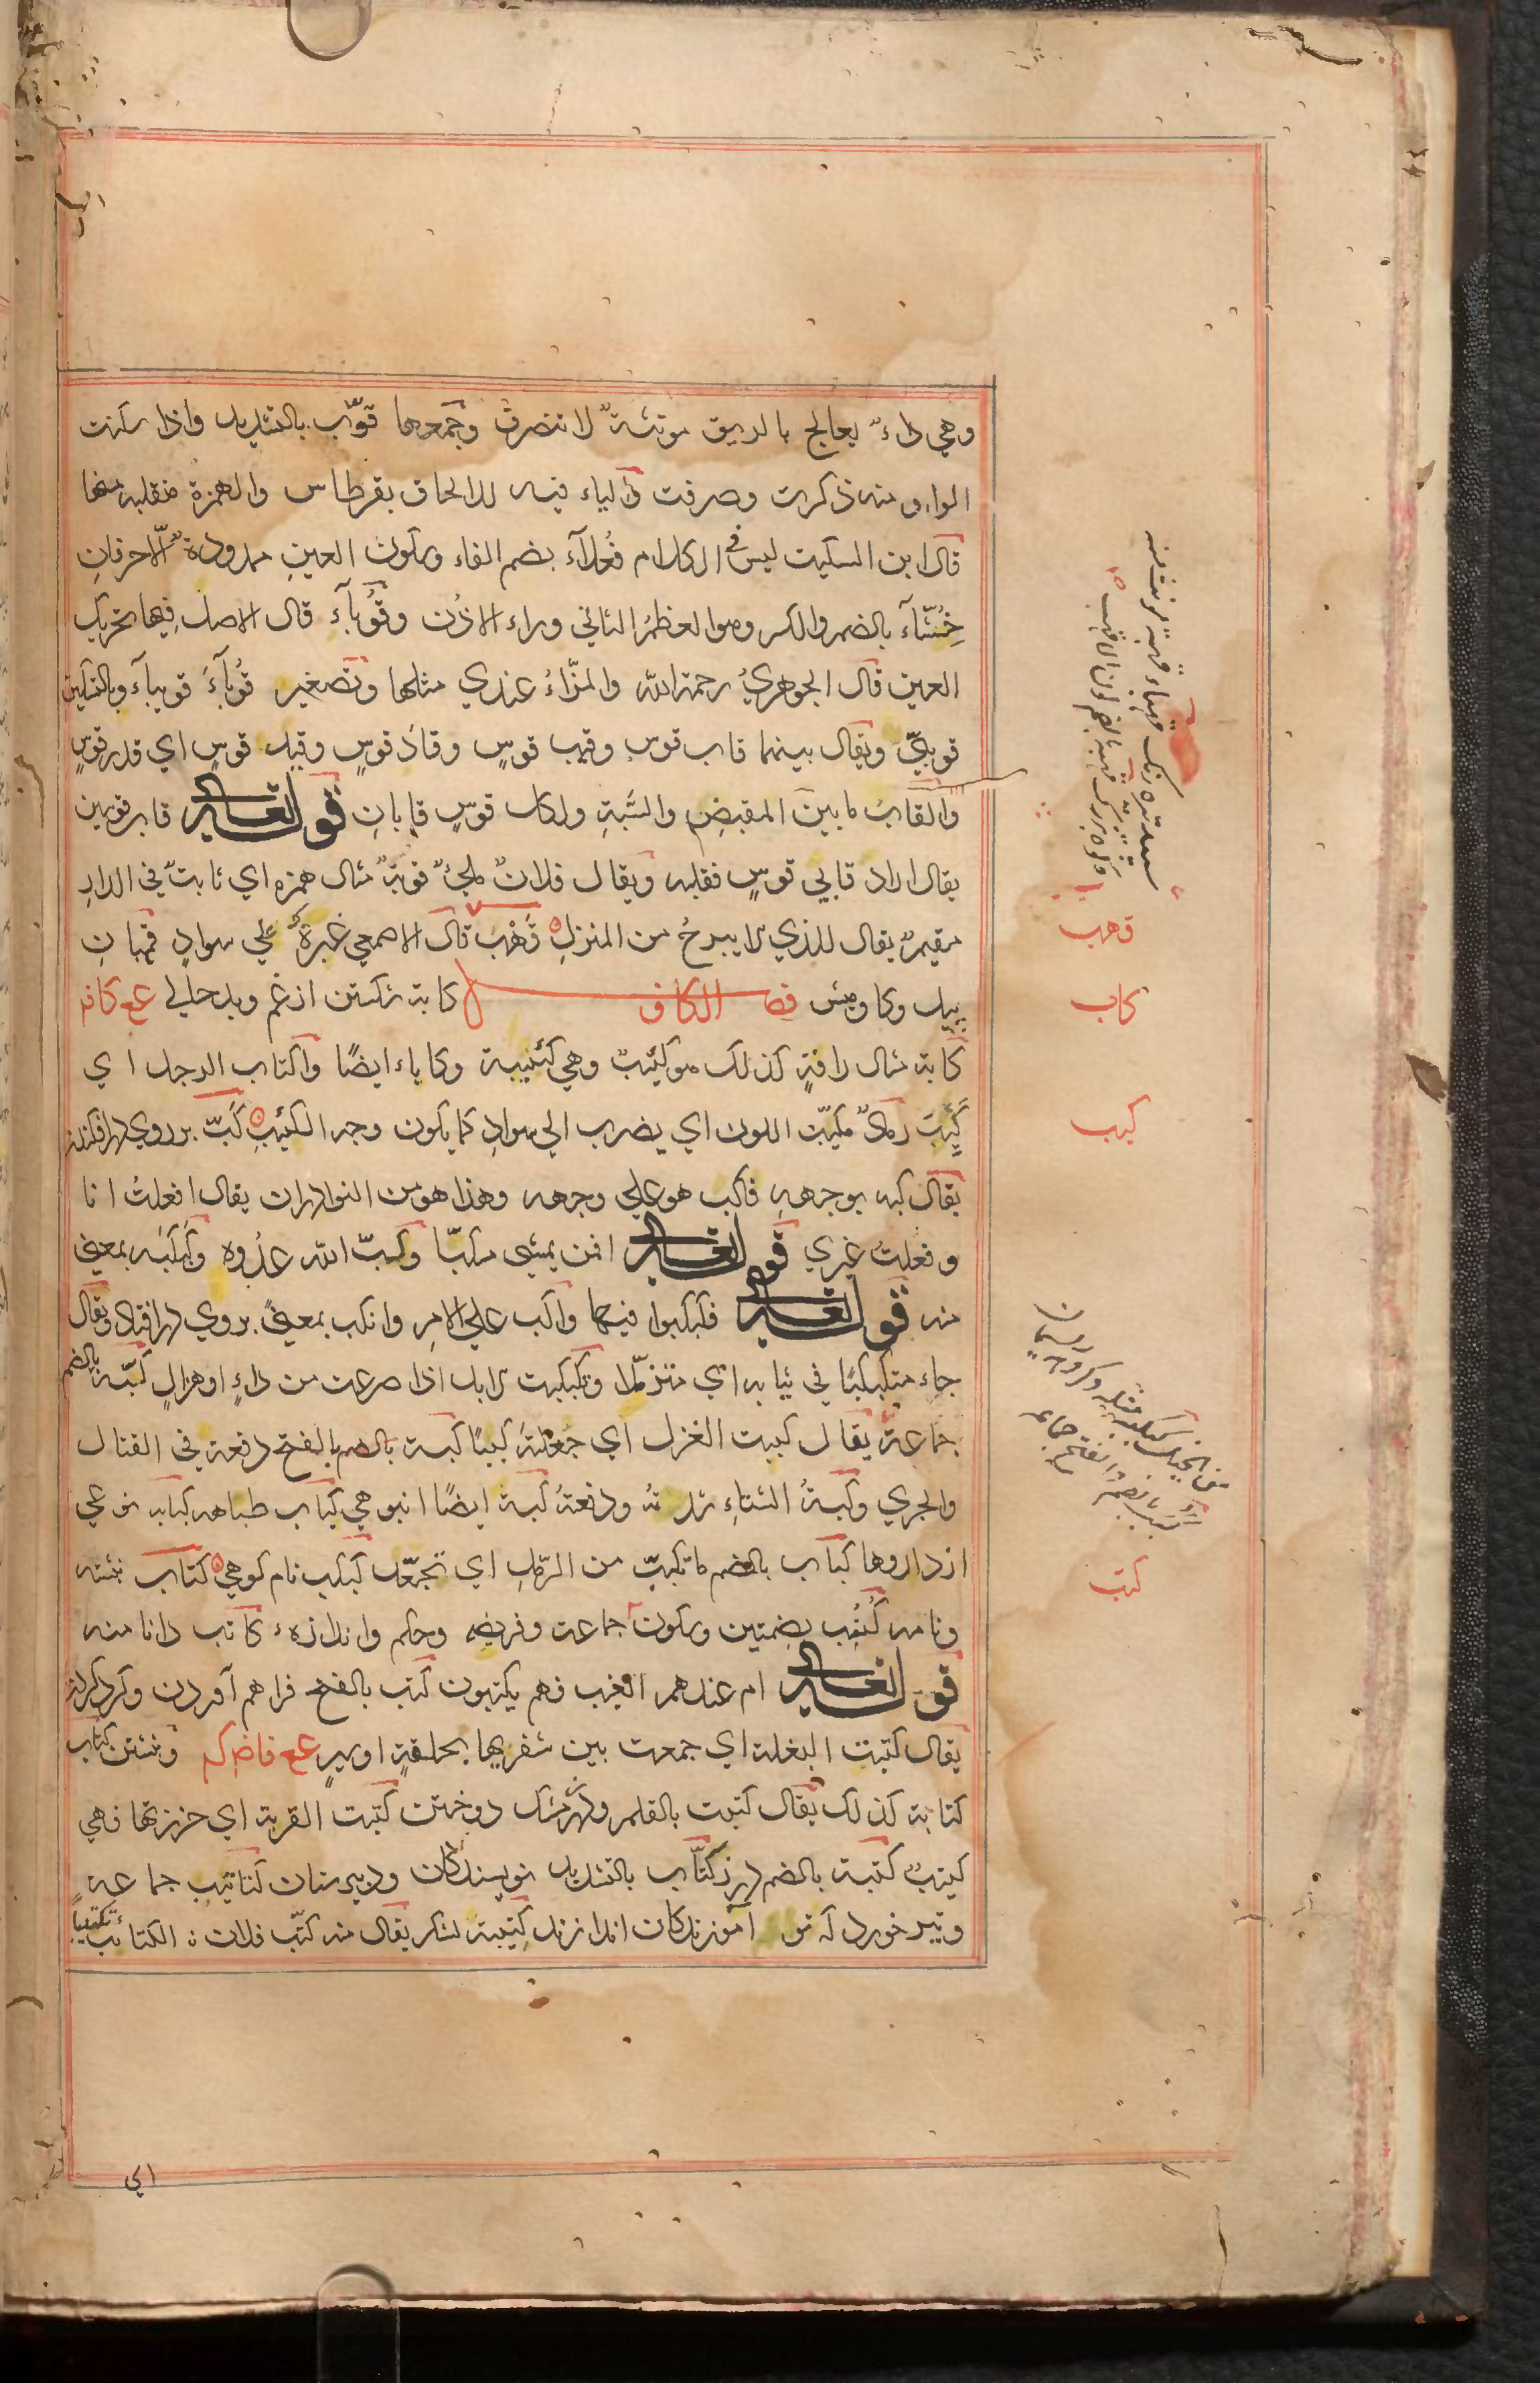 وهي داءٌ يعالج بالريق موتثةٌ لا تنصرف وجمعها قُوَّب بالتشديد واذا سكنت
الواو منه ذكرت وصرفت والياء فيه للالحاق بقرطاس والهمزة منقلبه منها
قال ابن السكيت ليس في الكلام فُعْلاَء بضم الفاء وسكون العينِ ممدودة الّا حرفانِ
خُشَّآء بالضم والكسر وهو العظمُ الناتي وراء الاذُن وقُوبآء قال الاصل فيها تحريك
العين قال الجوهريُ رحمة الله والمزّاءُ عندي مثلها وتصغير قُوبآءَ قويبآء وبالتسكين
قويبيّ ويقال بينهما قاب قوس وقيب قوسٍ وقادَ قوسٍ وقيد قوسٍ اي قدر قوسٍ
والقابُ ما بين المقبضِ والسِّيَةِ ولكل قوسٍ قابانِ قوله تعالى قاب قوسين
يقال اراد قابي قوسٍ فقلبه ويقال فلانٌ ملئٌ قوبةٌ مثال همزه اي ثابتٌ في الدارِ
مقيمٌ يقال للذي لا يبرحُ من المنزلِ قَهْب قال الاصمعي غبرة علي سوادٍ قهبانِ
پيل وكاوميش فصل الكاف كابة شكستن از غم وبدحالي مع كافه
كابة مثال رافةٍ كذلك هو كئيبٌ وهي كئيبة وكاباء ايضًا واكتاب الرجل اي
كَئِبَ رمادٌ مكتئبّ اللون اي يضرب الي سوادِ كما يكون وجه الكئيبِ كَبّ بر روي در افكندن
يقال كبه بوجههِ فاكب هو علي وجهه وهذا هو من النوادران يقال افعلتُ انا
وفعلتُ غيري قوله تعالى افمن يمشي مكبّا وكبّ الله عدُوه وكَبْكَبَه بمعني
منه قوله تعالى فكبكبوا فيها واكب علي الامر وانكب بمعنيً بروي درافتاد ويقال
جاء متكبكبًا في ثيابه اي متزمّلا وتكبكبت الابل اذا صرعت من داءٍ او هزالٍ كبّه بالضم
جماعةٌ يقال كببت الغزل اي جعلتهُ كببًا كبة بالضم بالفتح دفعة في القتال
والجري وكبةُ الشتاءِ شدتهُ ودفعتهُ كبة ايضًا انبوهي كباب طباهه كبابه نوعي
از داروها كباب بالضم ما تكببّ من الرّملِ اي تجعّد كبكب نام كوهي كتاب نبشته
ونامه كُتُب بضمتين وسكون جماعت وفريضه وحكم واندازهٴ كاتب دانا منه
قوله تعالى ام عندهم الغيب فهم يكتبون كتب بالفتح فراهم آوردن وكرد كردن
يقال كتبت البغلة اي جمعت بين شفريها بحلقةٍ او سيرٍ مع فاضركه ونبشتن كتاب
كتابة كذلك يقال كتبت بالقلم ودر مشك دوختن كتبت القربة اي خرزتها فهي
كتيبٌ كتبة بالضم درز كتّاب بالتشديد نويسندكان ودبيرستان كتاتيب جماعة
وتير خورد كه نو آموزندكان اندازند كتيبة لشكر يقال منه كتّب فلان الكتائب تكتيبًا
قهب
كاب
كبب
كتب
اي